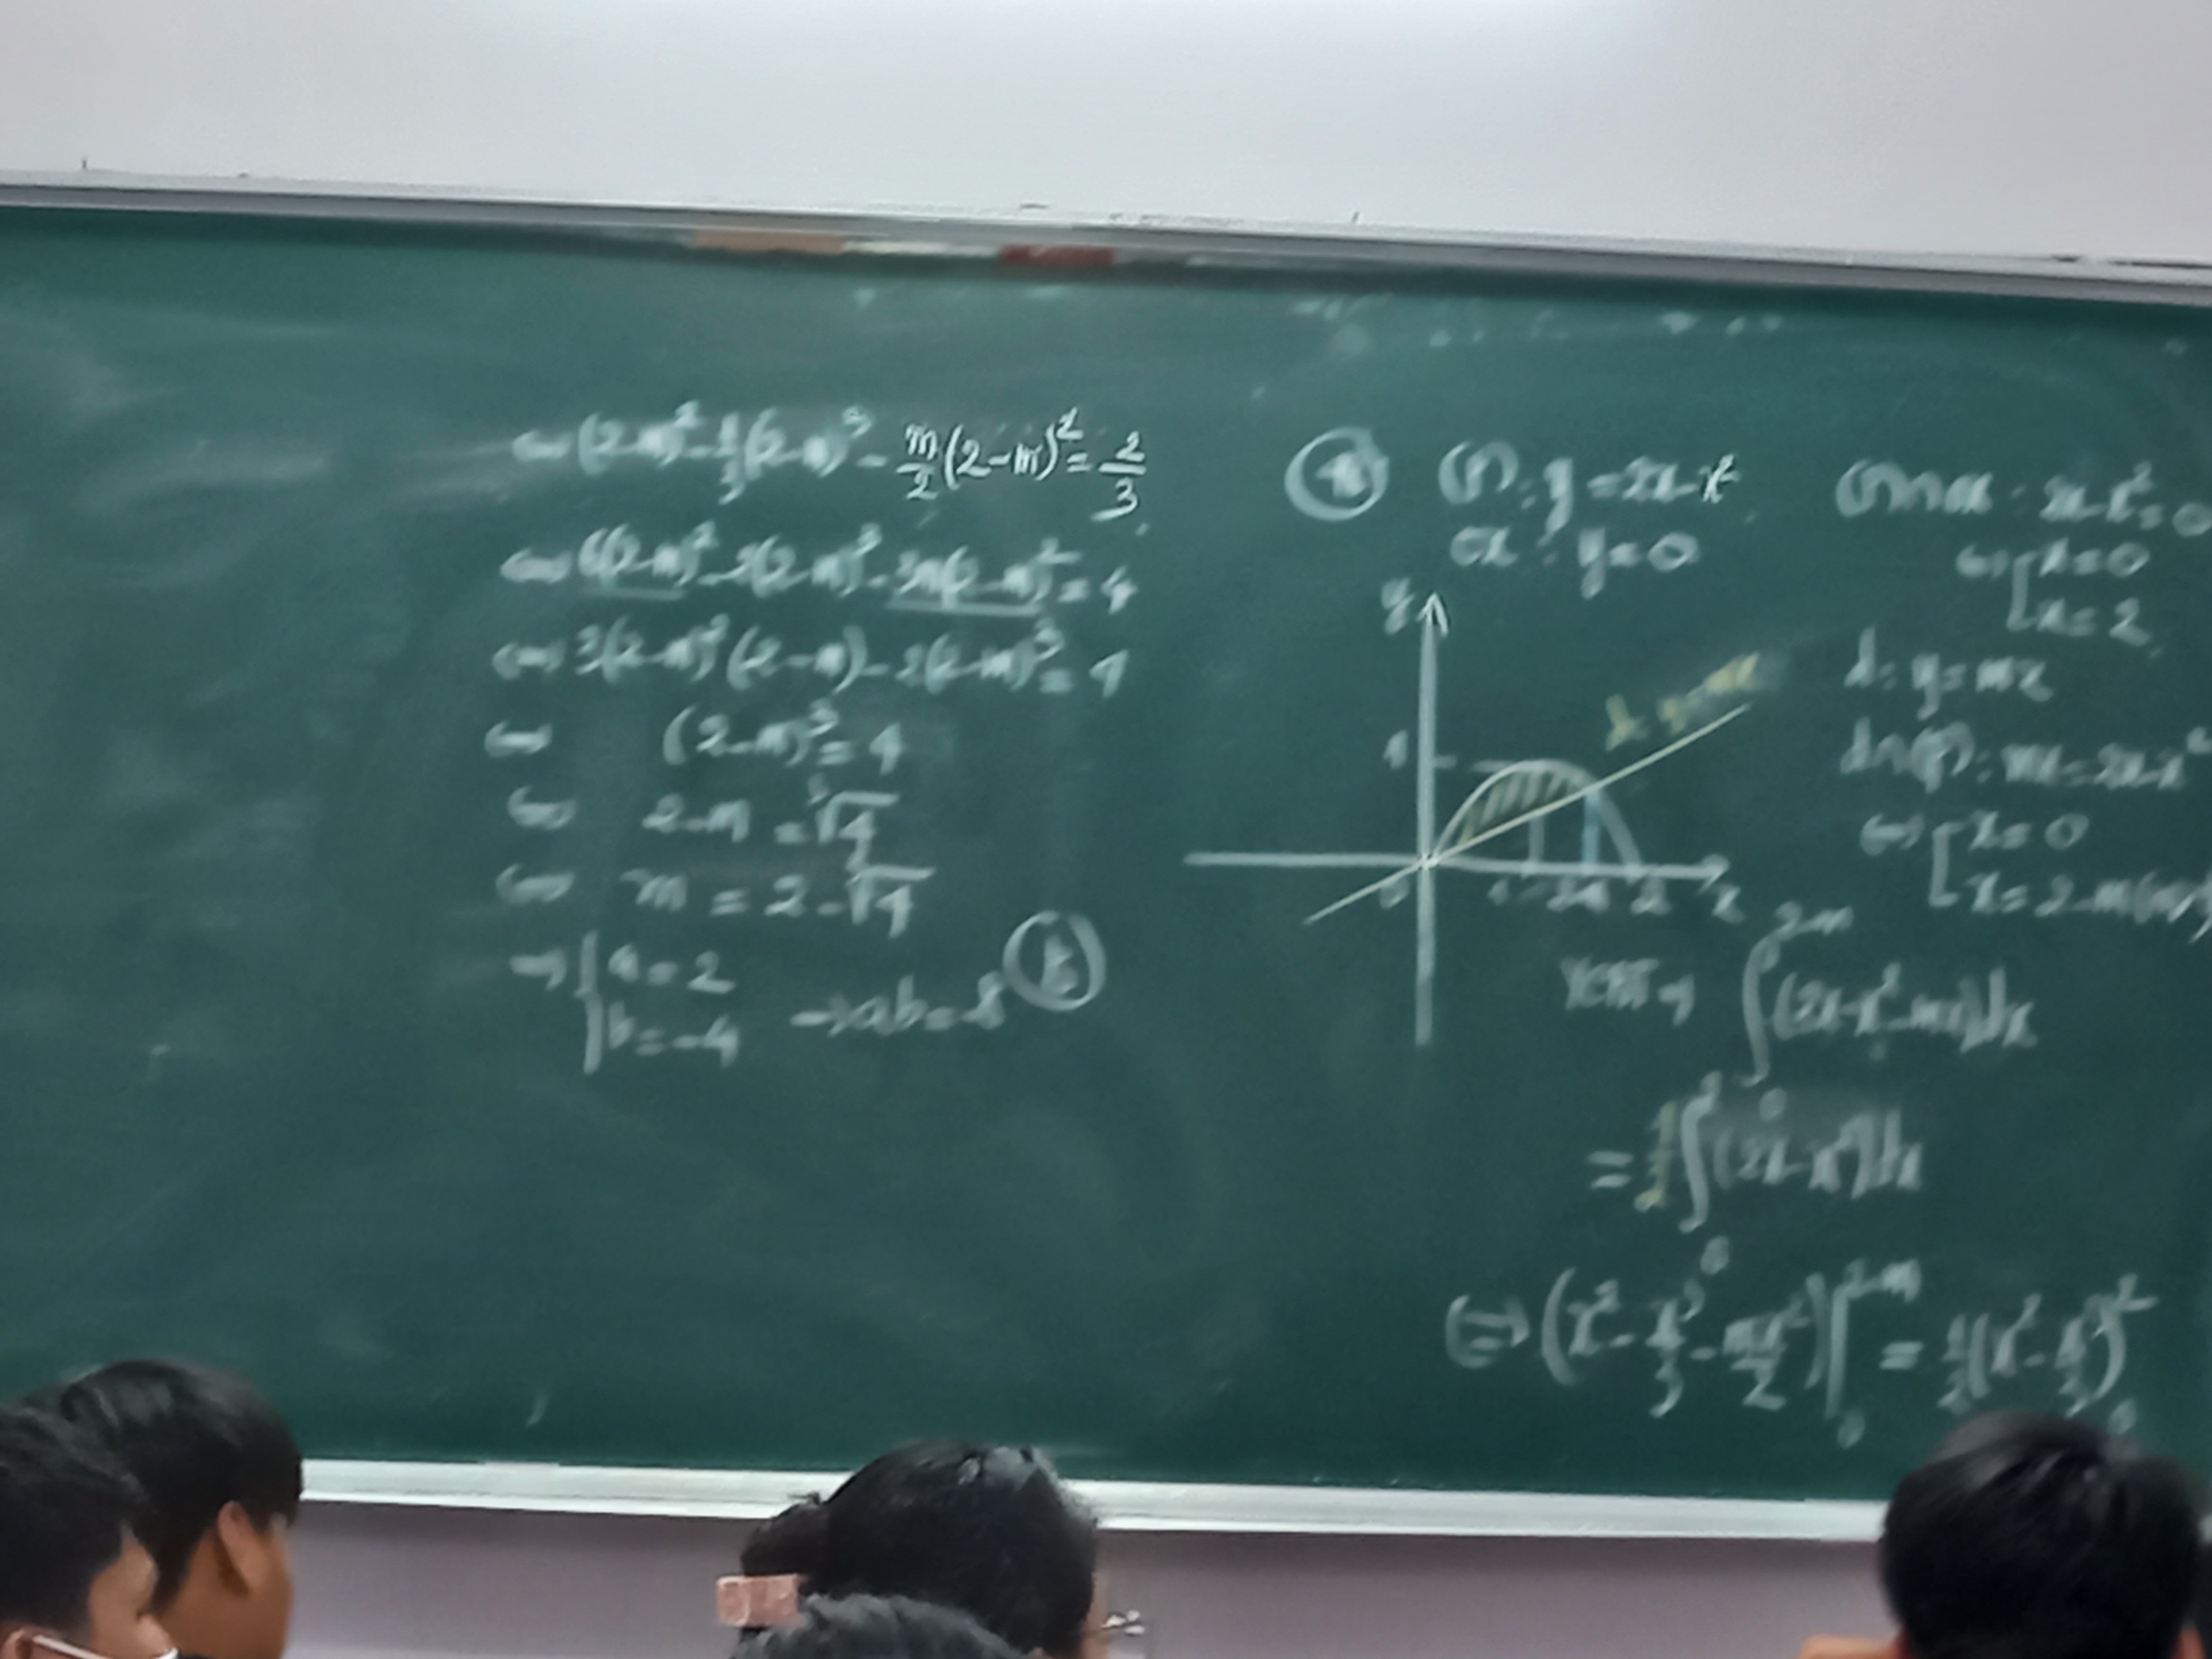 ⇔ (2-m)² - 1/3(2-m)³ - m/2(2-m)² = 2/3
⇔ 6(2-m)² - 2(2-m)³ - 3m(2-m)² = 4
⇔ 3(2-m)²(2-m) - 2(2-m)³ = 4
⇔ (2-m)³ = 4
⇔ 2-m = ³√4
⇔ m = 2 - ³√4
→ { a = 2
b = -4 → ab = -8
(P): y = 2x - x²
Ox: y = 0
(P)∩Ox: 2x - x² = 0
⇔ [ x = 0
x = 2
y
d: y = mx
1
0 1 2-m 2 x
d: y = mx
d∩(P): mx = 2x - x²
⇔ [ x = 0
x = 2-m
→ ∫₀²⁻ᵐ (2x - x² - mx)dx
= 1/2 ∫₀² (2x - x²)dx
⇔ (x² - x³/3 - mx²/2)|₀²⁻ᵐ = 1/2(x² - x³/3)|₀²